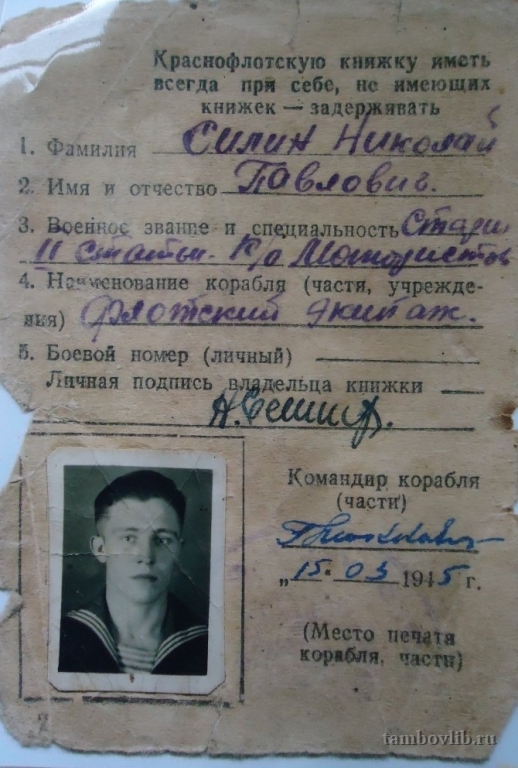 Краснофлотскую книжку иметь
всегда при себе, не имеющих
книжек — задерживать
1. Фамилия Силин Николай
2. Имя и отчество Павлович.
3. Военное звание и специальность Старш
II статьи. К/о Мотористов
4. Наименование корабля (части, учрежде-
ния) Флотский экипаж.
5. Боевой номер (личный)
Личная подпись владельца книжки
Командир корабля
(части)
„15" 03 1945 г.
(Место печати
корабля, части)
tambovlib.ru